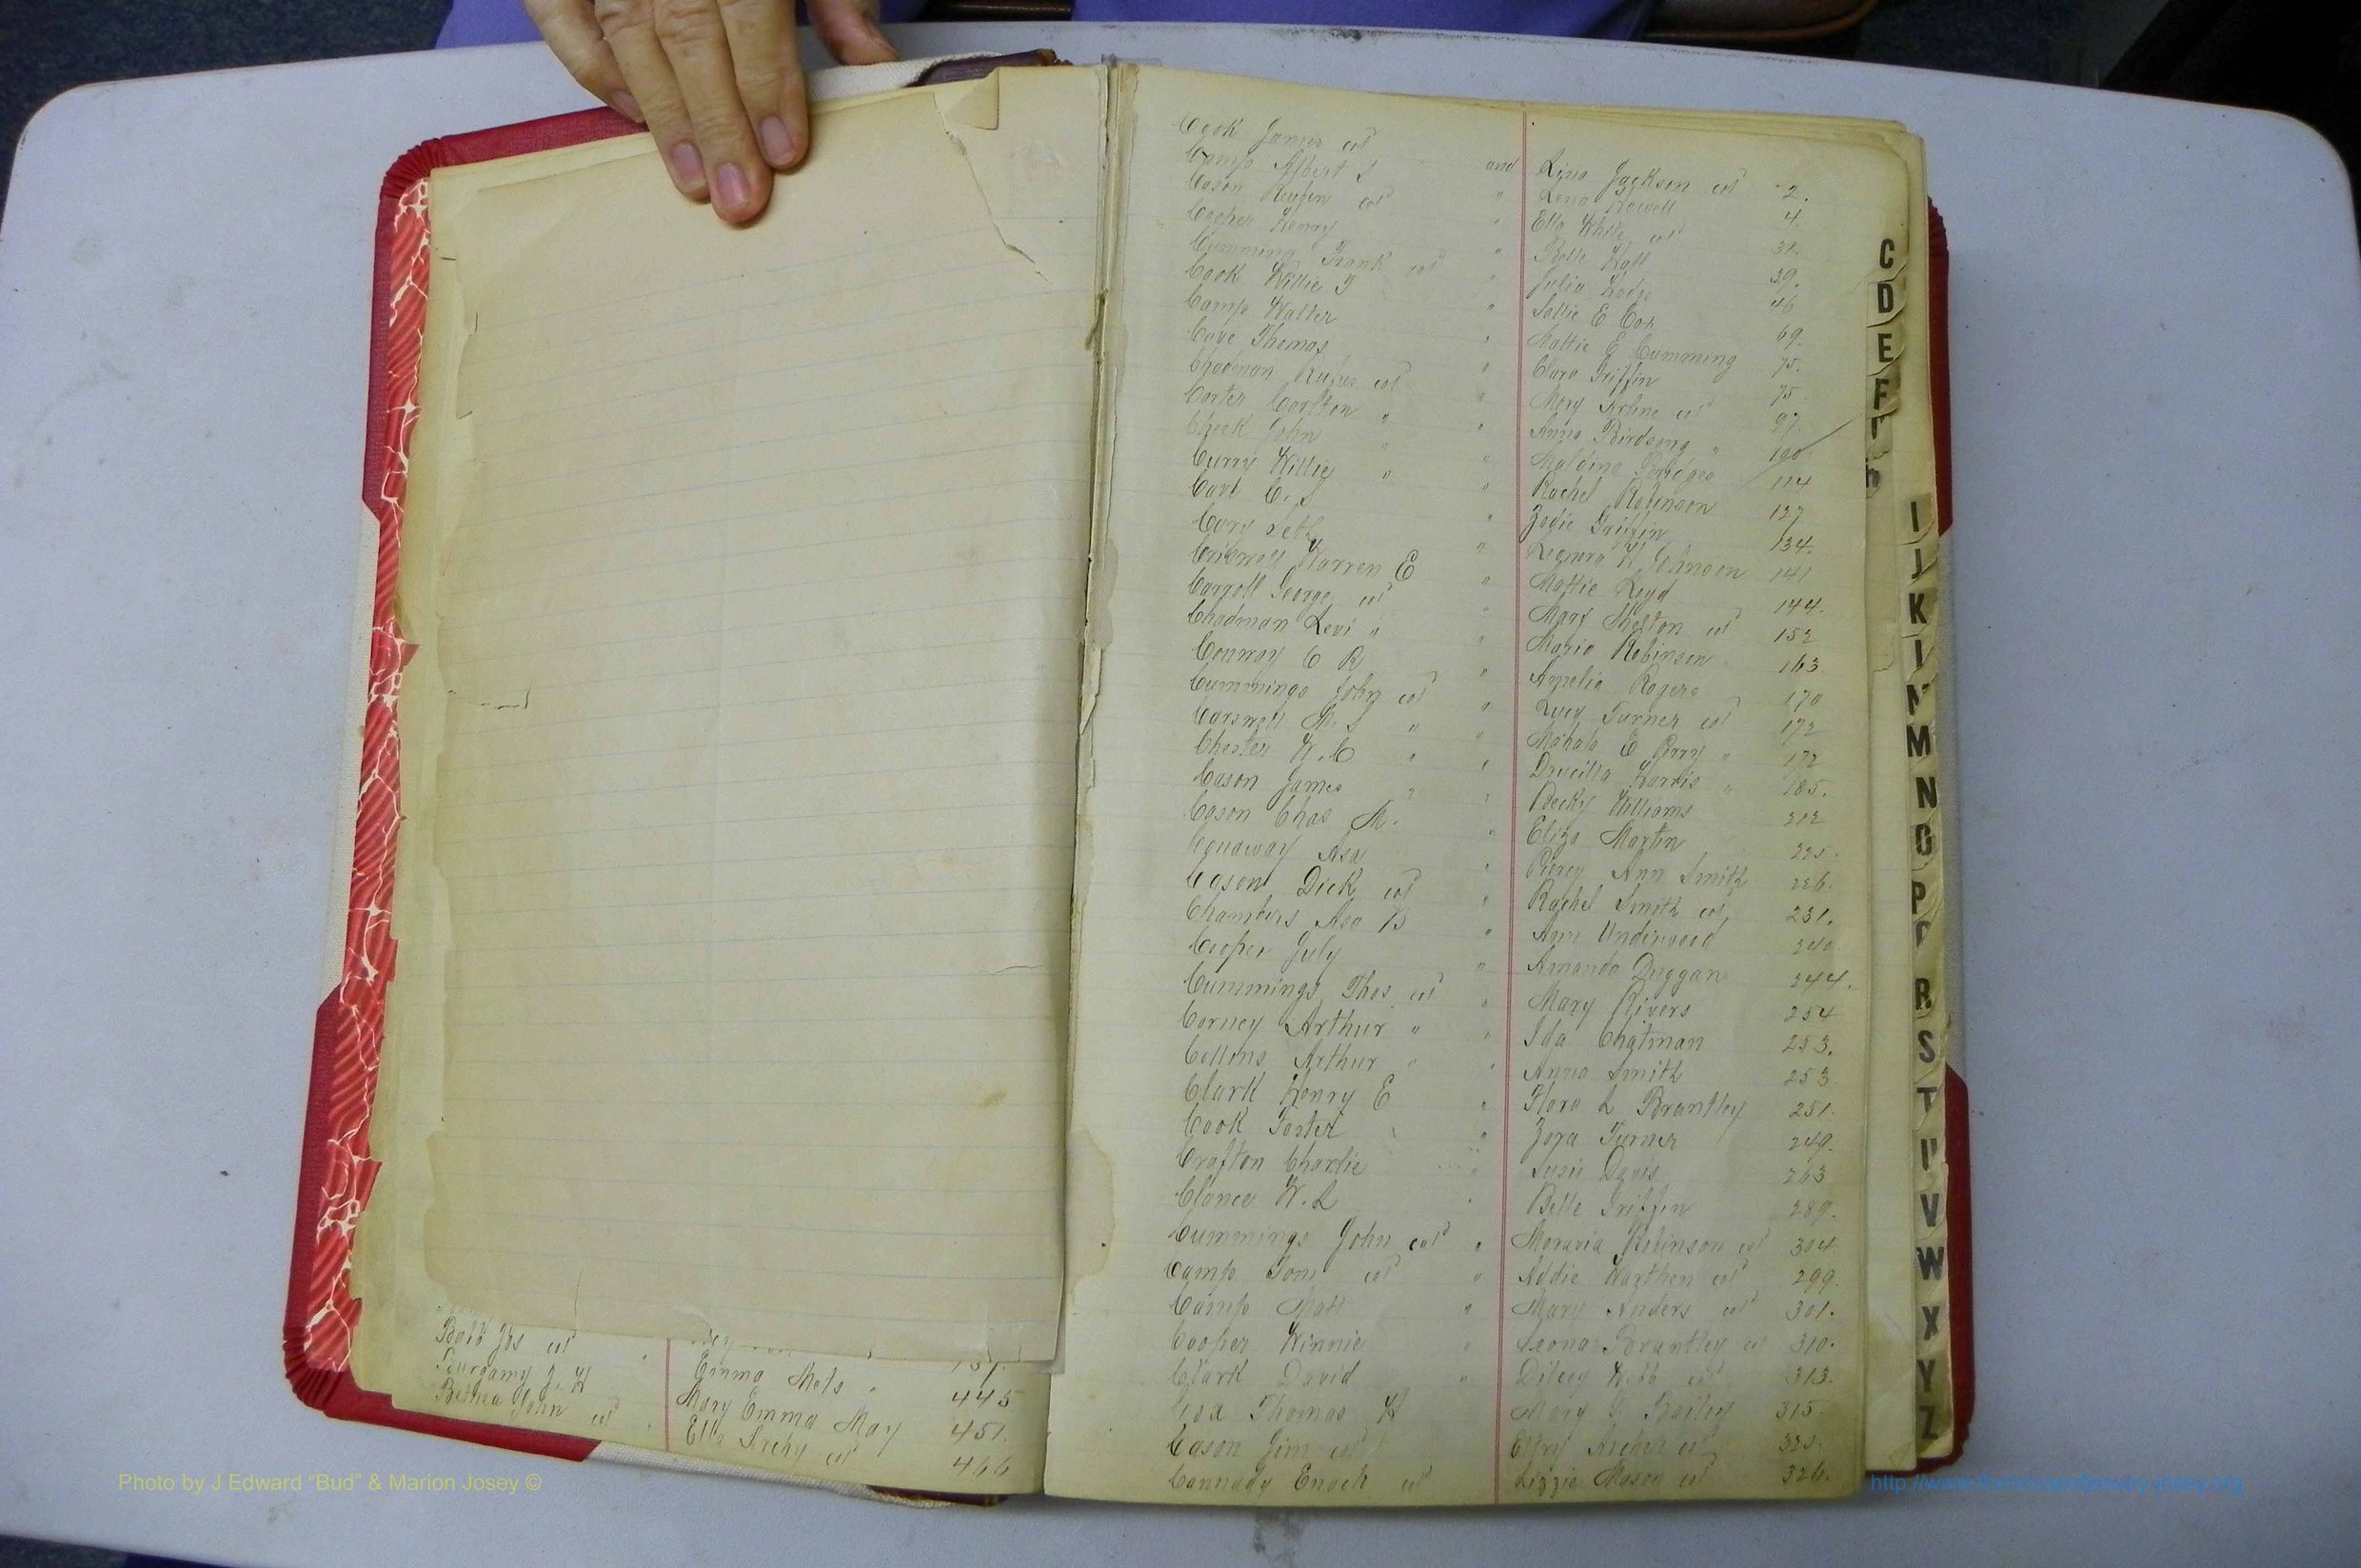 Cook James col and Lina Jackson col 2.
Camp Albert S " Lena Howell 4.
Cason Reuben col " Ella White col 31.
Cooper Henry " Belle Hall 39.
Cumming Frank col " Julia Hodge 46
Cook Willie T " Sallie E Cox 69.
Camp Walter " Mattie E Cumming 75.
Cave Thomas " Clara Griffin 75.
Chadman Rufus col " Mary Arline col 97.
Carter Carlton " " Anna Birdsong " 100
Cheek John " " Maldina Bridges 114
Curry Willie " " Rachel Robinson 127
Carl C. S " Zodie Griffin 134.
Cary Seth " Leonora H Johnson 141
Criswell Warren E " Mattie Loyd 144.
Carroll George col " Mary Shelton col 152
Chadman Levi " " Maria Robinson 163.
Conway C R " Amelia Rogers 170
Cummings John col " Lucy Turner col 172
Carswell M. S " " Mahala E Perry " 172
Chester W. C " " Drucilla Harris " 185.
Cason James " " Becky Williams 212
Cason Chas M. " Eliza Martin 225.
Conaway Asa " Piercy Ann Smith 226.
Cason Dick col " Rachel Smith col 231.
Chambers Asa B " Ann Underwood 240
Cooper July " Amanda Duggan 244.
Cummings Thos col " Mary Rivers 254
Corney Arthur " " Ida Chatman 253.
Collins Arthur " " Anna Smith 253
Clark Henry E " Flora L Brantley 251.
Cook Foster " Zora Turner 249.
Crafton Charlie " Susie Davis 263
Clance W. L " Belle Griffin 289.
Cummings John col " Moravia Robinson col 304.
Camp Tom col " Addie Warthen col 299.
Camp Matt " Mary Anders col 301.
Cooper Winnie " Leona Brantley col 310.
Clark David " Dilcey Webb col 313.
Thomas H Mary Bailey 315.
Cason Jim col Archer col 325.
Cannady Enoch col Lizzie Mason col 326.
Bobb Jos col 137.
Burgamy J. H Emma Mets " 445
Bethea John col Mary Emma May 451.
Ella Archy col 466
C
D
E
F
I
J
K
M
N
O
P
R
S
T
U
V
W
X
Y
Z
Photo by J Edward “Bud” & Marion Josey ©